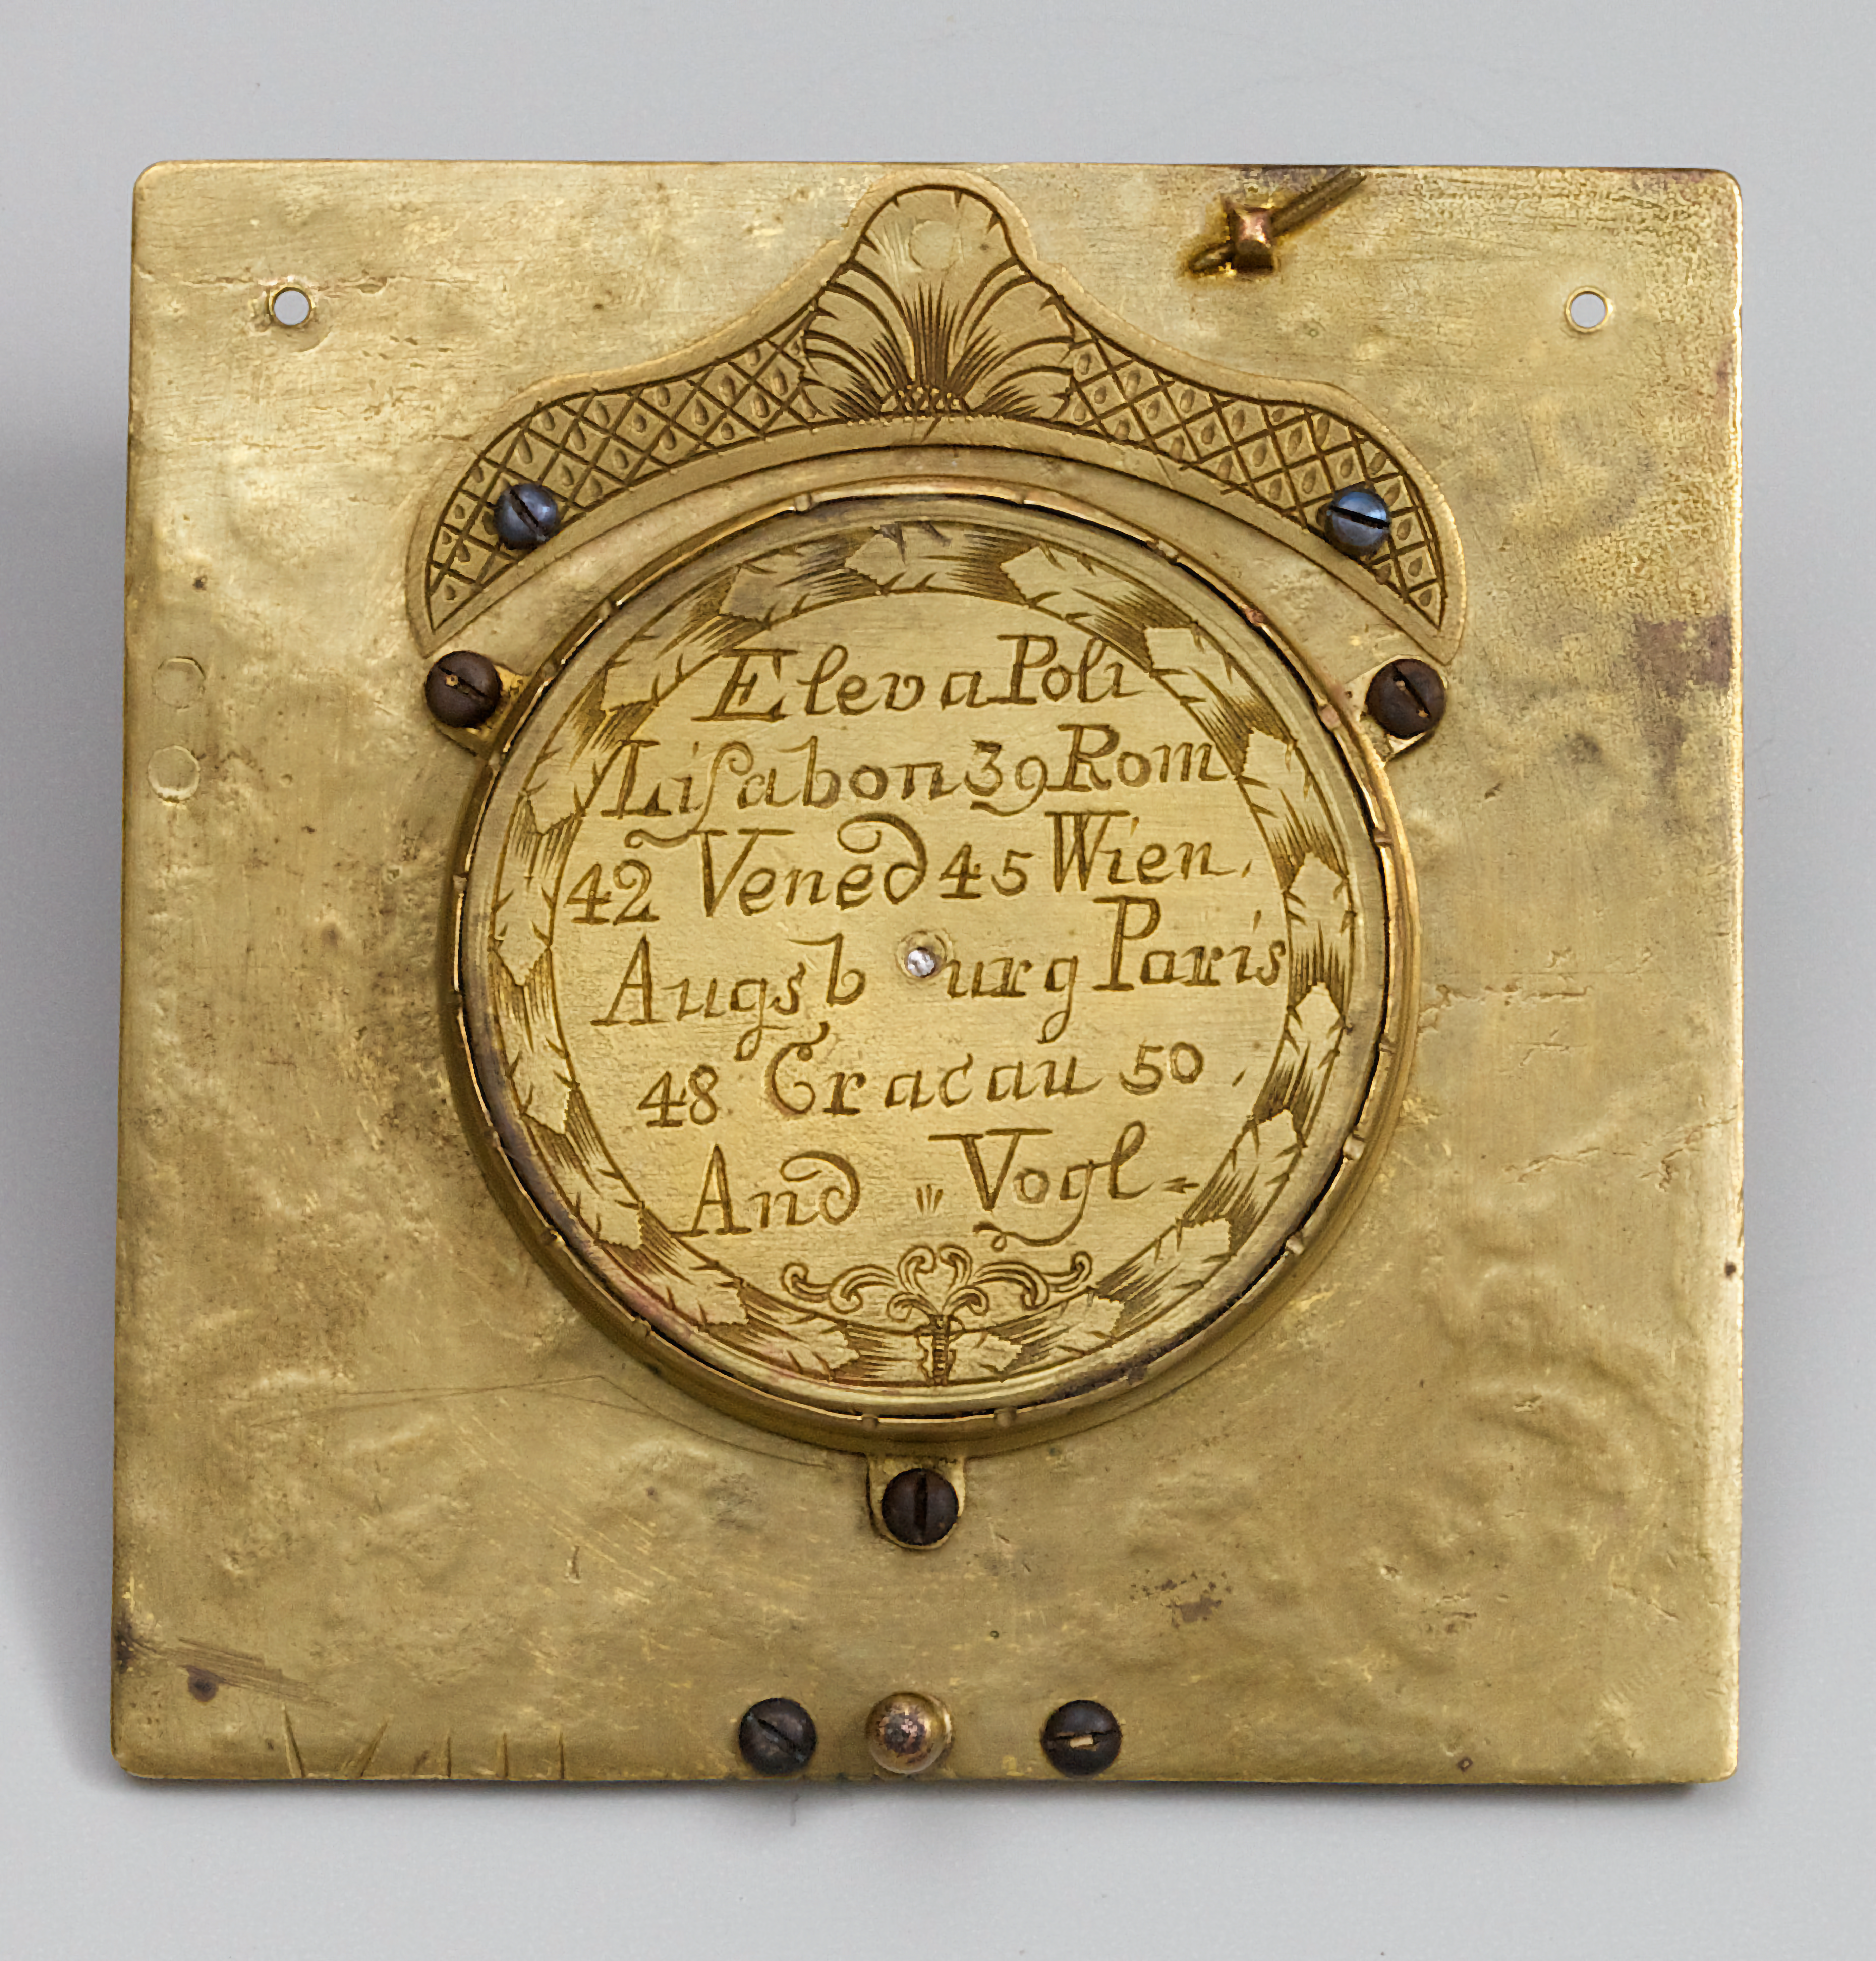 Eleva Poli
Liſabon 39 Rom
42 Vened 45 Wien.
Augsburg Paris
48 Cracau 50.
And " Vogl